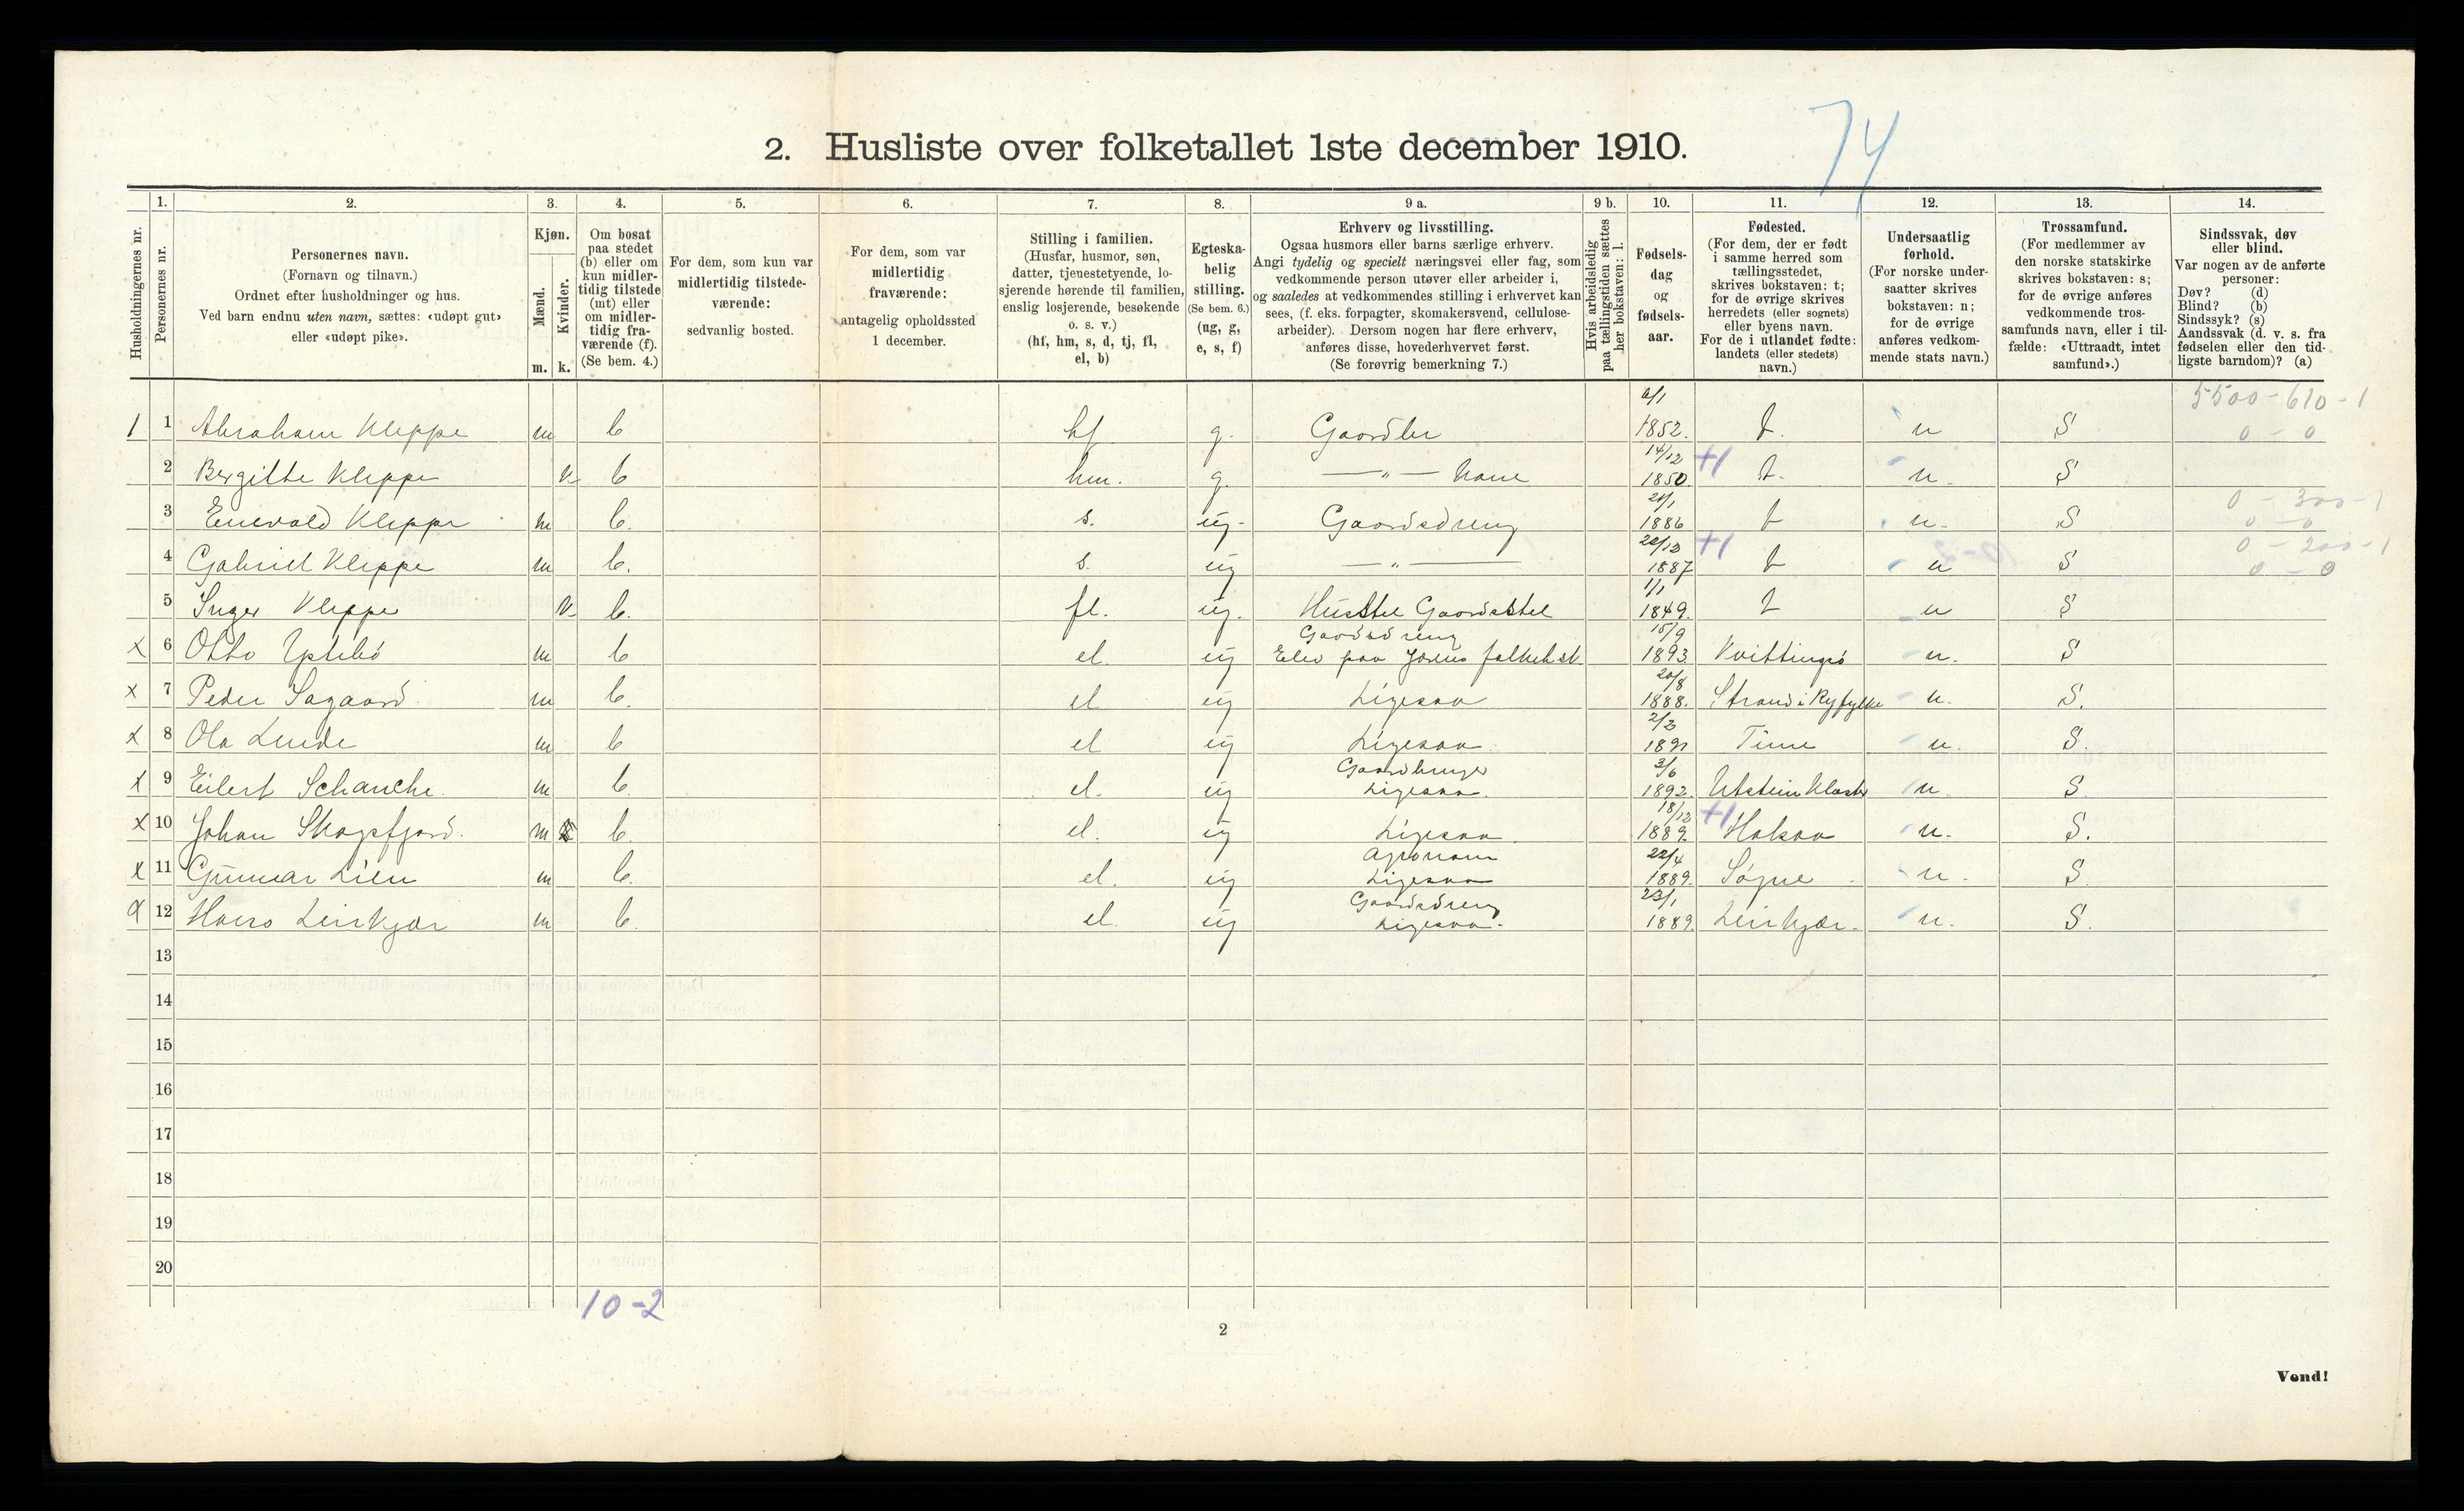 74
2. Husliste over folketallet 1ste december 1910.
1. 2. 3. 4. 5. 6. 7. 8. 9 a. 9 b. 10. 11. 12. 13. 14.
Husholdningernes nr.
Personernes nr.
Personernes navn.
(Fornavn og tilnavn.)
Ordnet efter husholdninger og hus.
Ved barn endnu uten navn, sættes: «udøpt gut»
eller «udøpt pike».
Kjøn.
Mænd.
Kvinder.
m. k.
Om bosat
paa stedet
(b) eller om
kun midler-
tidig tilstede
(mt) eller
om midler-
tidig fra-
værende (f).
(Se bem. 4.)
For dem, som kun var
midlertidig tilstede-
værende:
sedvanlig bosted.
For dem, som var
midlertidig
fraværende:
antagelig opholdssted
1 december.
Stilling i familien.
(Husfar, husmor, søn,
datter, tjenestetyende, lo-
sjerende hørende til familien,
enslig losjerende, besøkende
o. s. v.)
(hf, hm, s, d, tj, fl,
el, b)
Egteska-
belig
stilling.
(Se bem. 6.)
(ug, g,
e, s, f)
Erhverv og livsstilling.
Ogsaa husmors eller barns særlige erhverv.
Angi tydelig og specielt næringsvei eller fag, som
vedkommende person utøver eller arbeider i,
og saaledes at vedkommendes stilling i erhvervet kan
sees, (f. eks. forpagter, skomakersvend, cellulose-
arbeider). Dersom nogen har flere erhverv,
anføres disse, hovederhvervet først.
(Se forøvrig bemerkning 7.)
Hvis arbeidsledig
paa tællingstiden sættes
her bokstaven: l.
Fødsels-
dag
og
fødsels-
aar.
Fødested.
(For dem, der er født
i samme herred som
tællingsstedet,
skrives bokstaven: t;
for de øvrige skrives
herredets (eller sognets)
eller byens navn.
For de i utlandet fødte:
landets (eller stedets)
navn.)
Undersaatlig
forhold.
(For norske under-
saatter skrives
bokstaven: n;
for de øvrige
anføres vedkom-
mende stats navn.)
Trossamfund.
(For medlemmer av
den norske statskirke
skrives bokstaven: s;
for de øvrige anføres
vedkommende tros-
samfunds navn, eller i til-
fælde: «Uttraadt, intet
samfund».)
Sindssvak, døv
eller blind.
Var nogen av de anførte
personer:
Døv? (d)
Blind? (b)
Sindssyk? (s)
Aandssvak (d. v. s. fra
fødselen eller den tid-
ligste barndom)? (a)
6/1 5500-610-1
1 1 Abraham Kleppe m b hf g. Gaardbr 1852. t. n S 0-0
14/12
2 Bergitte Kleppe k b hm. g. —„— kone 1850. +1 t. n. S
0-300-1
3 Enevald Kleppe m b. s. ug. Gaardsdreng 1886 t n. S 0-0
22/12 0-200-1
4 Gabriel Kleppe m b. s. ug —„— 1887 +1 t n S 0-0
1/1
5 Inger Kleppe k b. fl. ug. Husstel Gaardsstel 1849. t n S
Gaardsdreng 15/9
x 6 Otto Ystebö m b el. ug Elev paa Jæren folkehsk 1893. Kvittingsö n. S
20/8
x 7 Peder Sagaard m b. el ug Ligesaa 1888. Strand i Ryfylke n. S.
x 8 Ola Lende m b el ug Ligesaa Time n. S.
Gaardbruger 3/6
x 9 Eilert Schanche. m b. el. ug Ligesaa. 1892. Utstein Kloster n. S
18/12
x 10 Johan Skogsfjord. m b. el. ug Ligesaa 1889. +1 n. S.
Agronom 22/4
x 11 Gunnar Lien m b. el. ug Ligesaa 1889. Søgne n. S
Gaardsdreng 23/1
x 12 Hans Leirkjær m b. el. ug Ligesaa. 1889. Leirkjær. n. S.
13
14
15
16
17
18
19
20
10-2
2
Vend!